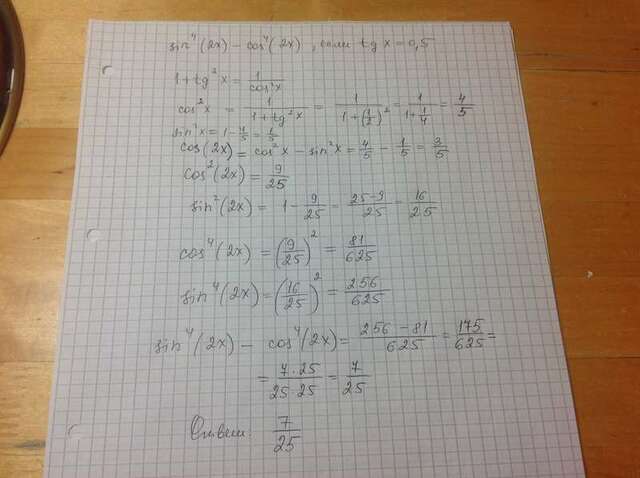 sin⁴(2x) − cos⁴(2x), если tg x = 0,5
1 + tg²x = 1/cos²x
cos²x = 1/(1 + tg²x) = 1/(1 + (1/2)²) = 1/(1 + 1/4) = 4/5
sin²x = 1 − 4/5 = 1/5
cos(2x) = cos²x − sin²x = 4/5 − 1/5 = 3/5
cos²(2x) = 9/25
sin²(2x) = 1 − 9/25 = (25 − 9)/25 = 16/25
cos⁴(2x) = (9/25)² = 81/625
sin⁴(2x) = (16/25)² = 256/625
sin⁴(2x) − cos⁴(2x) = (256 − 81)/625 = 175/625 =
= (7·25)/(25·25) = 7/25
Ответ: 7/25